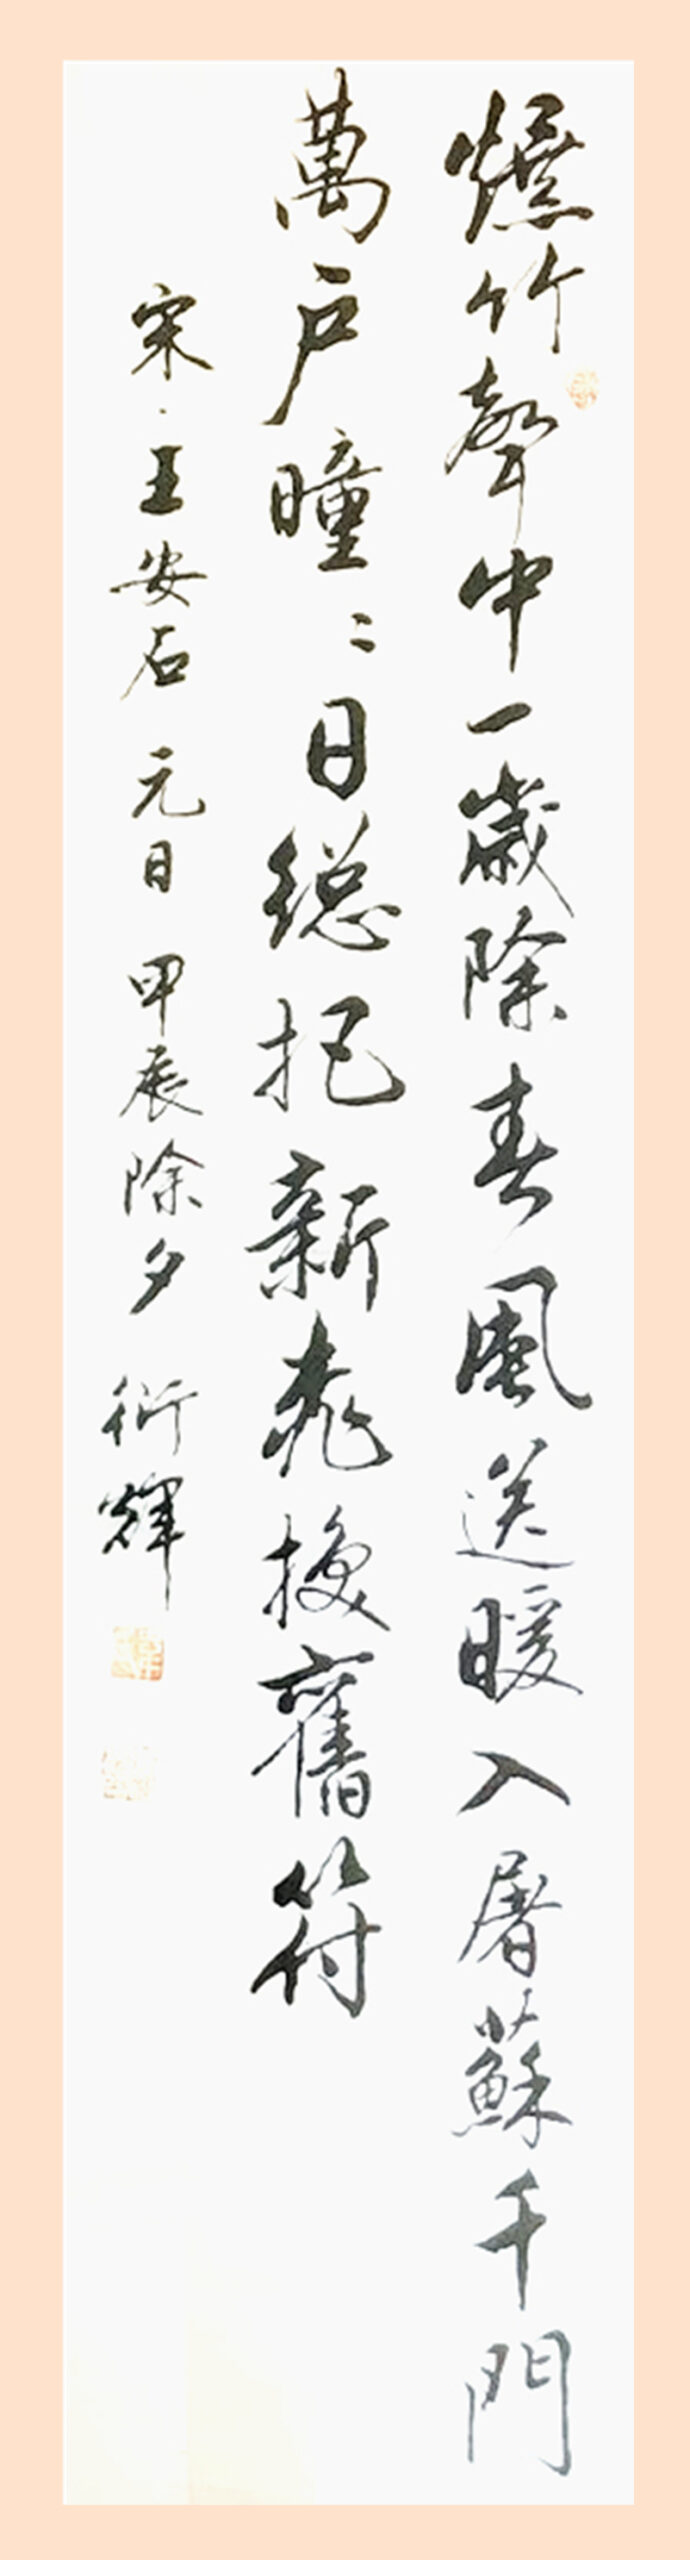 爆竹聲中一歲除春風送暖入屠蘇千門
萬戶曈〻日總把新桃換舊符
宋·王安石 元日 甲辰除夕 衍輝